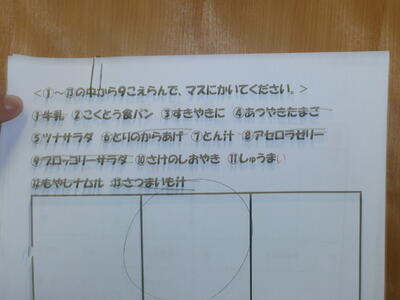 <①～⑬の中から9こえらんで、マスにかいてください。>
①牛乳 ②こくとう食パン ③すきやきに ④あつやきたまご
⑤ツナサラダ ⑥とりのからあげ ⑦とん汁 ⑧アセロラゼリー
⑨ブロッコリーサラダ ⑩さけのしおやき ⑪しゅうまい
⑫もやしナムル ⑬さつまいも汁